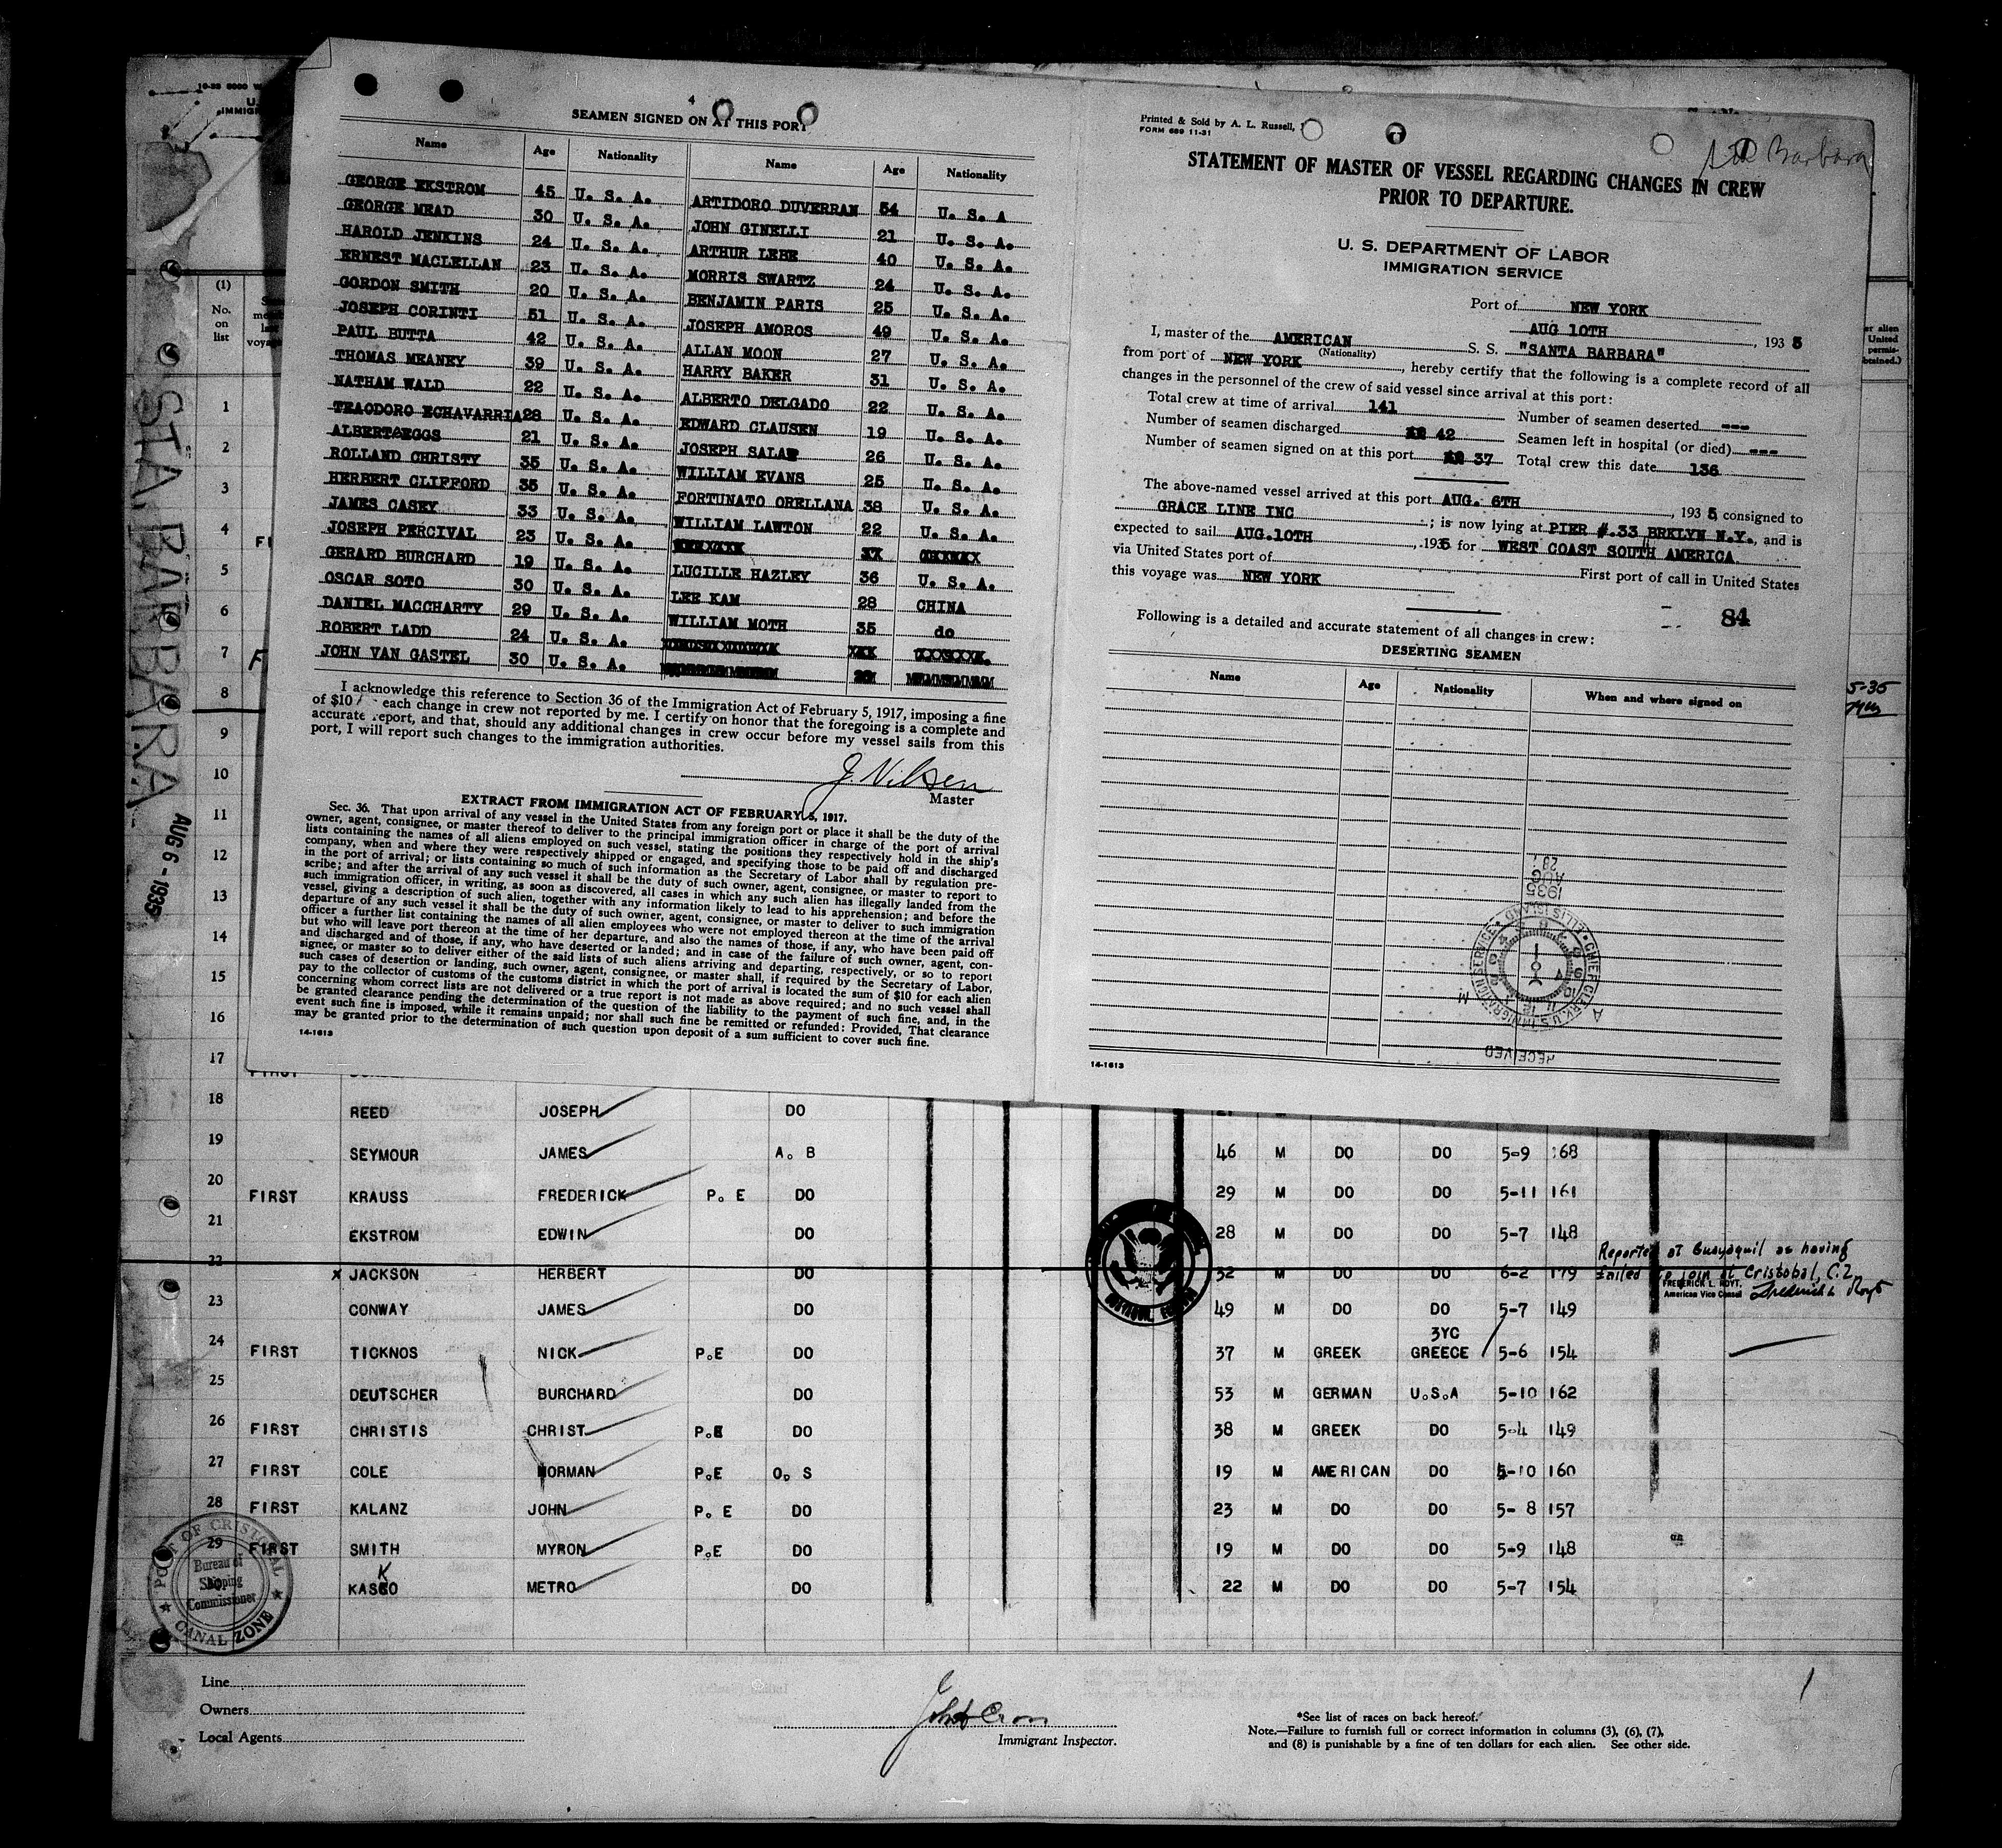 4
SEAMEN SIGNED ON AT THIS PORT
Name Age Nationality Name Age Nationality
GEORGE EKSTROM 45 U. S. A. ARTIDORO DUVERRAN 54 U. S. A
GEORGE MEAD 30 U. S. A. JOHN GINELLI 21 U. S. A.
HAROLD JENKINS 24 U. S. A. ARTHUR LEBE 40 U. S. A.
ERNEST MACLELLAN 23 U. S. A. MORRIS SWARTZ 24 U. S. A.
GORDON SMITH 20 U. S. A. BENJAMIN PARIS 25 U. S. A.
JOSEPH CORINTI 51 U. S. A. JOSEPH AMOROS 49 U. S. A.
PAUL BUTTA 42 U. S. A. ALLAN MOON 27 U. S. A.
THOMAS MEANEY 39 U. S. A. HARRY BAKER 31 U. S. A.
NATHAM WALD 22 U. S. A. ALBERTO DELGADO 22 U. S. A.
TEAODORO ECHAVARRIA 28 U. S. A. EDWARD CLAUSEN 19 U. S. A.
ALBERT EGGS 21 U. S. A. JOSEPH SALAF 26 U. S. A.
ROLLAND CHRISTY 35 U. S. A. WILLIAM EVANS 25 U. S. A.
HERBERT CLIFFORD 35 U. S. A. FORTUNATO ORELLANA 38 U. S. A.
JAMES CASEY 33 U. S. A. WILLIAM LAWTON 22 U. S. A.
JOSEPH PERCIVAL 23 U. S. A.
GERARD BURCHARD 19 U. S. A. LUCILLE HAZLEY 36 U. S. A.
OSCAR SOTO 30 U. S. A. LEE KAM 28 CHINA
DANIEL MACCHARTY 29 U. S. A. WILLIAM MOTH 35 do
ROBERT LADD 24 U. S. A.
JOHN VAN GASTEL 30 U. S. A.
I acknowledge this reference to Section 36 of the Immigration Act of February 5, 1917, imposing a fine
of $10 each change in crew not reported by me. I certify on honor that the foregoing is a complete and
accurate report, and that, should any additional changes in crew occur before my vessel sails from this
port, I will report such changes to the immigration authorities.
J. Nilsen
Master
EXTRACT FROM IMMIGRATION ACT OF FEBRUARY 5, 1917.
Sec. 36. That upon arrival of any vessel in the United States from any foreign port or place it shall be the duty of the
owner, agent, consignee, or master thereof to deliver to the principal immigration officer in charge of the port of arrival
lists containing the names of all aliens employed on such vessel, stating the positions they respectively hold in the ship's
company, when and where they were respectively shipped or engaged, and specifying those to be paid off and discharged
in the port of arrival; or lists containing so much of such information as the Secretary of Labor shall by regulation pre-
scribe; and after the arrival of any such vessel it shall be the duty of such owner, agent, consignee, or master to report to
such immigration officer, in writing, as soon as discovered, all cases in which any such alien has illegally landed from the
vessel, giving a description of such alien, together with any information likely to lead to his apprehension; and before the
departure of any such vessel it shall be the duty of such owner, agent, consignee, or master to deliver to such immigration
officer a further list containing the names of all alien employees who were not employed thereon at the time of the arrival
but who will leave port thereon at the time of her departure, and also the names of those, if any, who have been paid off
and discharged and of those, if any, who have deserted or landed; and in case of the failure of such owner, agent, con-
signee, or master so to deliver either of the said lists of such aliens arriving and departing, respectively, or so to report
such cases of desertion or landing, such owner, agent, consignee, or master shall, if required by the Secretary of Labor,
pay to the collector of customs of the customs district in which the port of arrival is located the sum of $10 for each alien
concerning whom correct lists are not delivered or a true report is not made as above required; and no such vessel shall
be granted clearance pending the determination of the question of the liability to the payment of such fine, and, in the
event such fine is imposed, while it remains unpaid; nor shall such fine be remitted or refunded: Provided, That clearance
may be granted prior to the determination of such question upon deposit of a sum sufficient to cover such fine.
14-1613
Printed & Sold by A. L. Russell,
FORM 689 11-31
Sta Barbara
STATEMENT OF MASTER OF VESSEL REGARDING CHANGES IN CREW
PRIOR TO DEPARTURE.
U. S. DEPARTMENT OF LABOR
IMMIGRATION SERVICE
Port of NEW YORK
AUG 10TH, 1935
I, master of the AMERICAN S. S. "SANTA BARBARA"
(Nationality)
from port of NEW YORK, hereby certify that the following is a complete record of all
changes in the personnel of the crew of said vessel since arrival at this port:
Total crew at time of arrival 141 Number of seamen deserted ---
Number of seamen discharged 42 Seamen left in hospital (or died) ---
Number of seamen signed on at this port 37 Total crew this date 136
The above-named vessel arrived at this port AUG. 6TH, 1935, consigned to
GRACE LINE INC; is now lying at PIER #.33 BRKLYN N.Y., and is
expected to sail AUG.10TH, 1935 for WEST COAST SOUTH AMERICA.
via United States port of First port of call in United States
this voyage was NEW YORK
84
Following is a detailed and accurate statement of all changes in crew:
DESERTING SEAMEN
Name Age Nationality When and where signed on
RECEIVED
CHIEF CLERK, U.S. IMMIGRATION SERVICE • ELLIS ISLAND
1935
AUG
14-1613
STA. BARBARA
STA BARBARA
AUG 6 - 1935
(1)
No.
on
list
1
2
3
4
5
6
7
8
9
10
11
12
13
14
15
16
17
18 REED JOSEPH DO
19 SEYMOUR JAMES A. B 46 M DO DO 5-9 168
20 FIRST KRAUSS FREDERICK P. E DO 29 M DO DO 5-11 161
21 EKSTROM EDWIN DO 28 M DO DO 5-7 148
22 x JACKSON HERBERT DO 32 M DO DO 6-2 179
Reported at Guayaquil as having
failed to join at Cristobal, C.Z.
FREDERICK L. ROYT.
American Vice Consul
23 CONWAY JAMES DO 49 M DO DO 5-7 149
3YC
24 FIRST TICKNOS NICK P.E DO 37 M GREEK GREECE 5-6 154
25 DEUTSCHER BURCHARD DO 53 M GERMAN U.S.A 5-10 162
26 FIRST CHRISTIS CHRIST P.E DO 38 M GREEK DO 5-4 149
27 FIRST COLE NORMAN P.E O. S 19 M AMERICAN DO 5-10 160
28 FIRST KALANZ JOHN P. E DO 23 M DO DO 5-8 157
29 FIRST SMITH MYRON P.E DO 19 M DO DO 5-9 148
KASKO METRO DO 22 M DO DO 5-7 154
PORT OF CRISTOBAL
Bureau of
Shipping
Commissioner
CANAL ZONE
Line
Owners
Local Agents
Immigrant Inspector.
*See list of races on back hereof.
Note.—Failure to furnish full or correct information in columns (3), (6), (7),
and (8) is punishable by a fine of ten dollars for each alien. See other side.
1